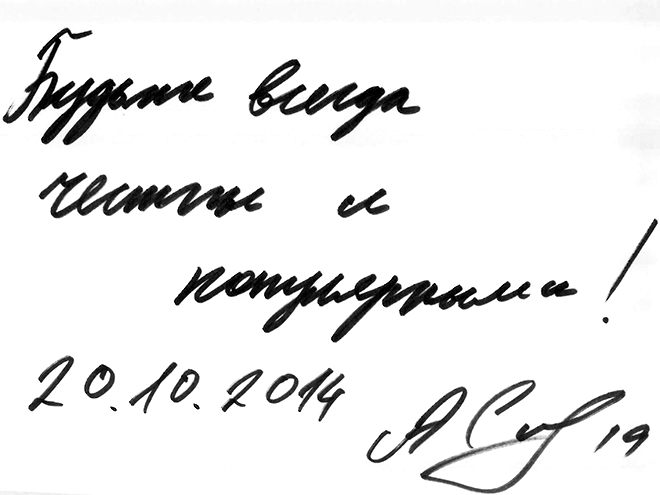 Будьте всегда
честны и
популярными!
20.10.2014